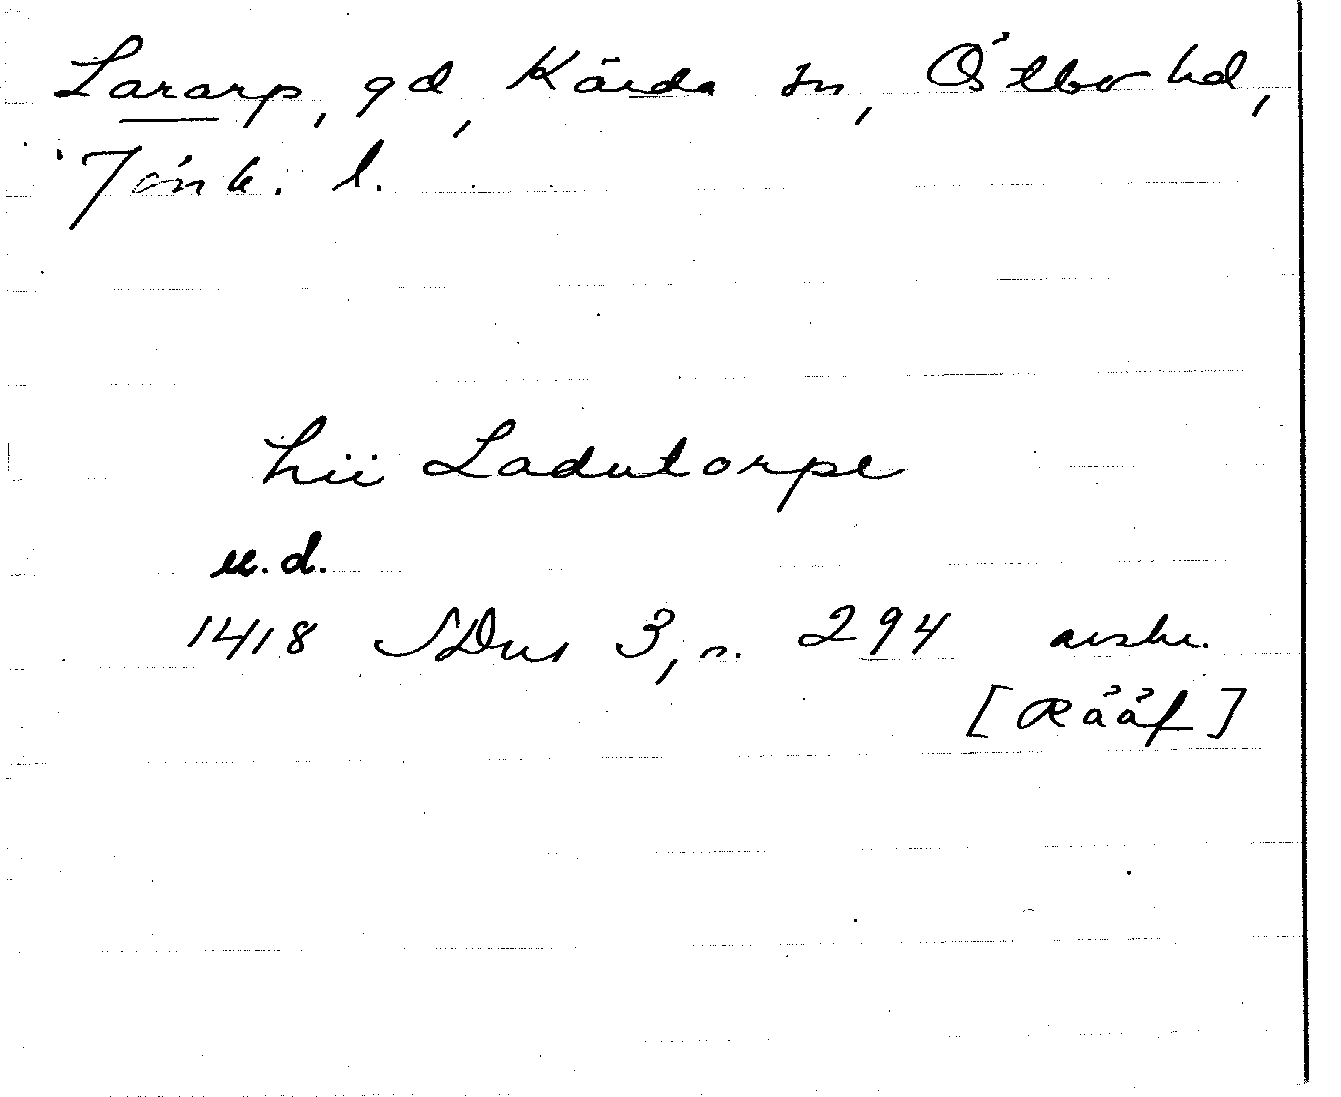 Lararp, gd, Kärda sn, Östbo hd,
Jönk. l.
hii Ladutorpe
u.d.
1418 SDns 3, s. 294 avskr.
[Rååf]